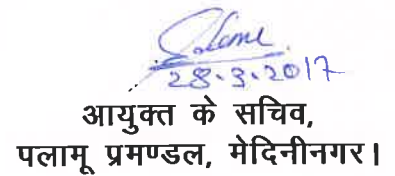 28.3.2017
आयुक्त के सचिव,
पलामू प्रमण्डल, मेदिनीनगर।